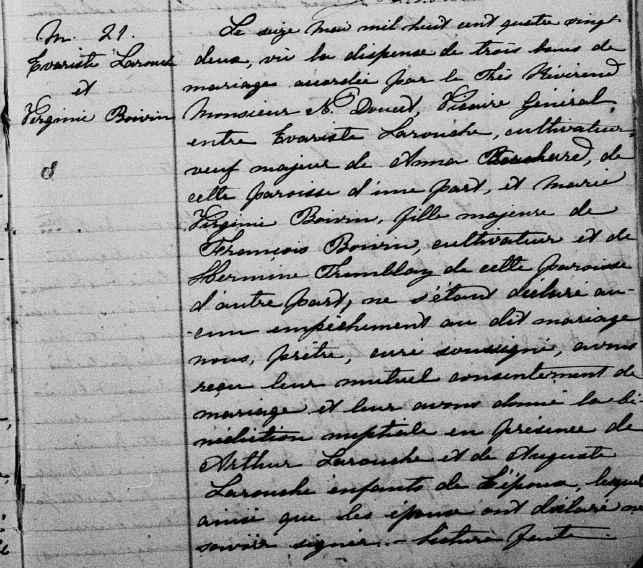 M. 21.
Evariste Larouche
et
Virginie Boivin
Le seize mai mil huit cent quatre vingt
deux, vu la dispense de trois bans de
mariage accordée par le Très Révérend
Monsieur N. Doucet, Vicaire Général,
entre Evariste Larouche, cultivateur
veuf majeur de Anna Bouchard, de
cette paroisse d'une part, et Marie
Virginie Boivin, fille majeure de
François Boivin, cultivateur et de
Hermine Tremblay de cette paroisse
d'autre part, ne s'étant déclaré au-
-cun empêchement au dit mariage
nous, prêtre, curé soussigné, avons
reçu leur mutuel consentement de
mariage et leur avons donné la bé
nédiction nuptiale en présence de
Arthur Larouche et de Auguste
Larouche enfants de l'époux, lesquels
ainsi que les époux ont déclaré ne
savoir signer. - Lecture faite.